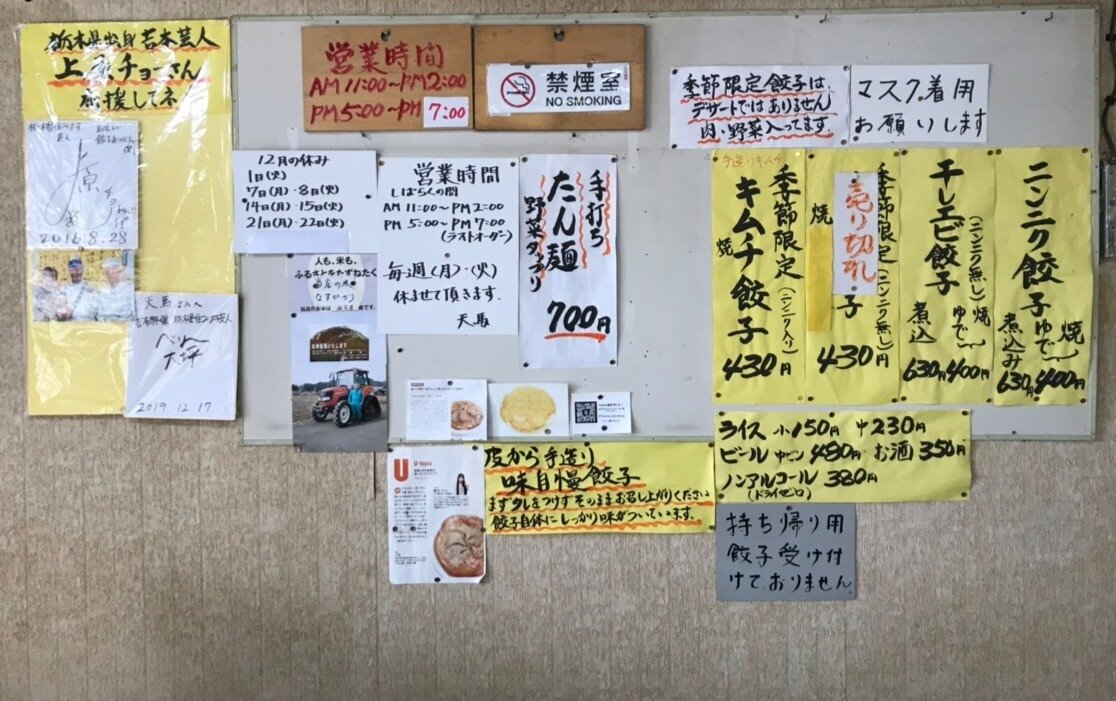 栃木県出身吉本芸人
上原チョーさん
応援してネ!
2016.8.28
天馬さんへ
大坪
2019 12 17
営業時間
AM11:00~PM2:00
PM5:00~PM7:00
禁煙室
NO SMOKING
季節限定餃子は、
デザートではありません
肉・野菜入ってます。
マスク着用
お願いします
12月の休み
1日(火)
7日(月)・8日(火)
14日(月)・15日(火)
21日(月)・22日(火)
営業時間
しばらくの間
AM 11:00~PM 2:00
PM 5:00~PM 7:00
(ラストオーダー)
毎週(月)・(火)
休ませて頂きます。
天馬
手打ち
たん麺
野菜タップリ
700円
人も、米も、
ふるさとをたずねたく
なすひかり
手造りキムチ
季節限定(ニンニク入り)
キムチ餃子
焼
430円
季節限定(ニンニク無し)
売り切れ
焼
子
430円
干しエビ餃子
(ニンニク無し)
焼
ゆで
400円
煮込
630円
ニンニク餃子
焼
ゆで
400円
煮込み
630円
ライス 小150円 中230円
ビール 中ビン480円 お酒350円
ノンアルコール 380円
(ドライゼロ)
U
U-topia
皮から手造り
味自慢餃子
まずタレをつけずそのままお召し上がりください
餃子自体にしっかり味がついています。
持ち帰り用
餃子受け付
けておりません